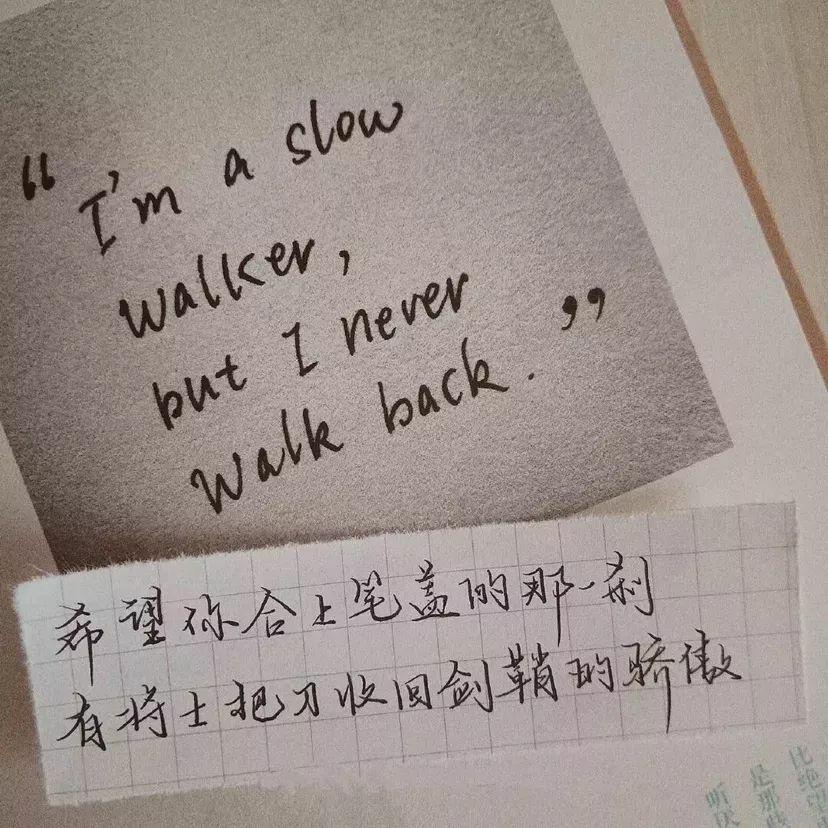 “I'm a slow
walker,
but I never
walk back.”
希望你合上笔盖的那一刹
有将士把刀收回剑鞘的骄傲
比绝望
是那
听